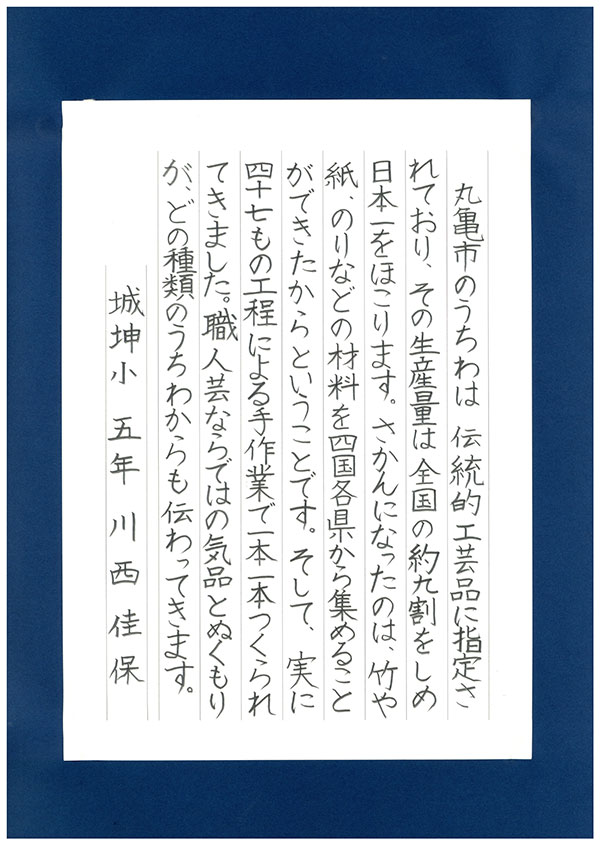 丸亀市のうちわは伝統的工芸品に指定さ
れており、その生産量は全国の約九割をしめ
日本一をほこります。さかんになったのは、竹や
紙、のりなどの材料を四国各県から集めること
ができたからということです。そして、実に
四十七もの工程による手作業で一本一本つくられ
てきました。職人芸ならではの気品とぬくもり
が、どの種類のうちわからも伝わってきます。
城坤小 五年 川西佳保